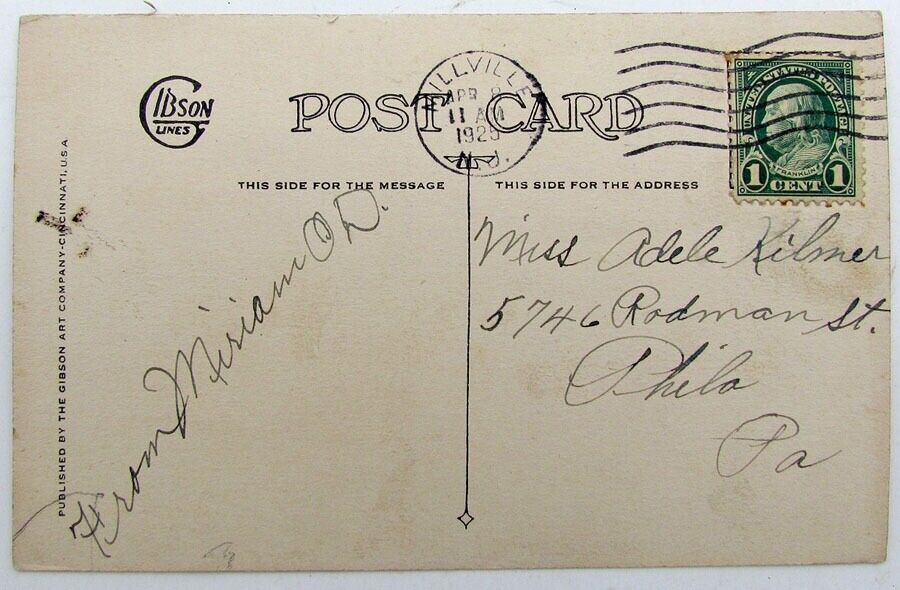 GIBSON
LINES
POST CARD
MILLVILLE
APR 8
11 AM
1925
N. J.
UNITED STATES POSTAGE
FRANKLIN
1 CENT 1
THIS SIDE FOR THE MESSAGE
THIS SIDE FOR THE ADDRESS
PUBLISHED BY THE GIBSON ART COMPANY-CINCINNATI, U.S.A
From Miriam O D.
Miss Adele Kilmer
5746 Rodman St.
Phila
Pa